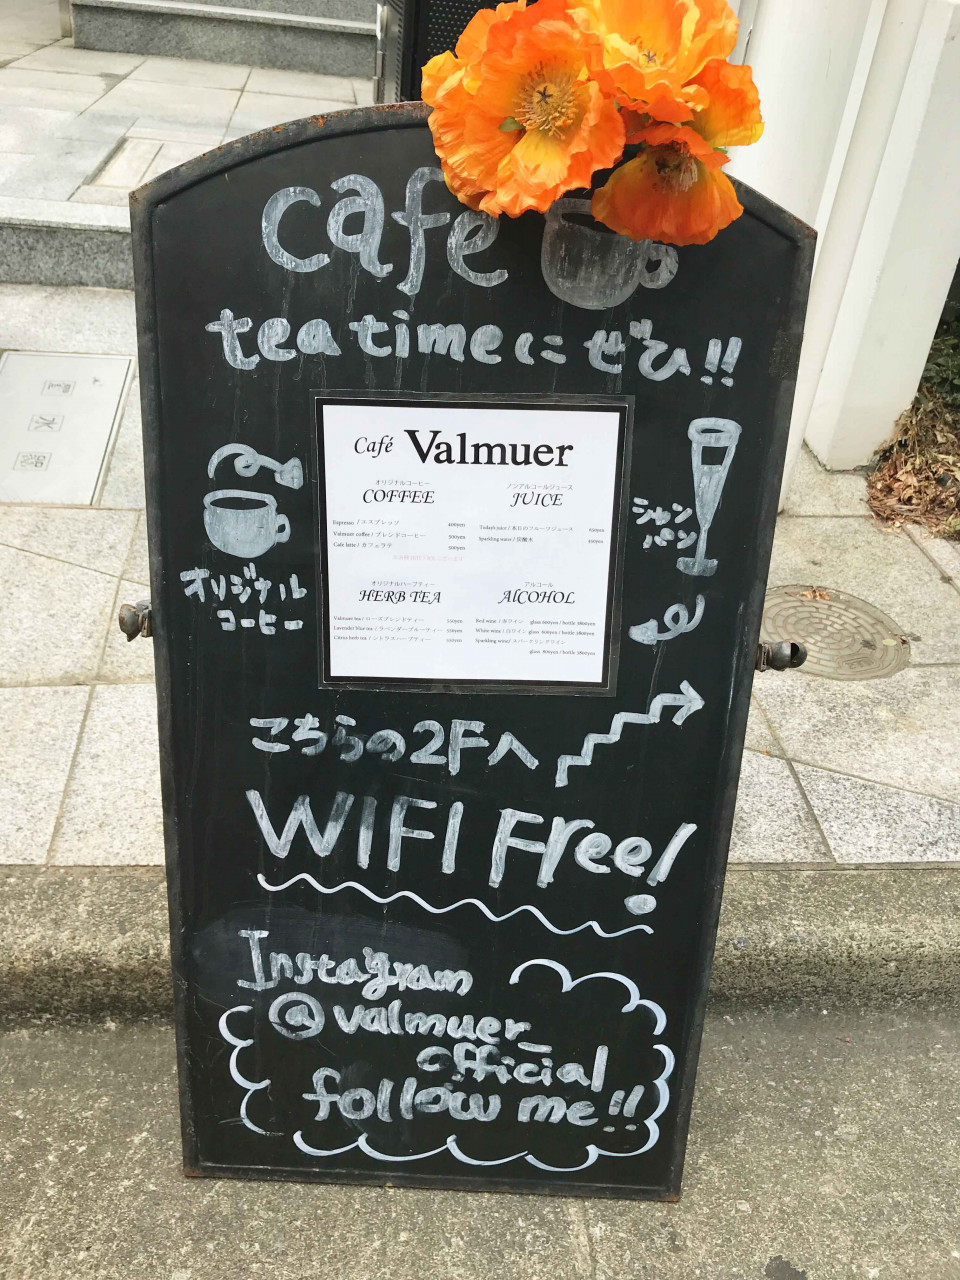 cafe
tea timeにぜひ!!
Café Valmuer
オリジナルコーヒー
COFFEE
Espresso / エスプレッソ 400yen
Valmuer coffee / ブレンドコーヒー 500yen
Cafe latte / カフェラテ 500yen
ノンアルコールジュース
JUICE
Today's juice / 本日のフルーツジュース 650yen
Sparkling water / 炭酸水 450yen
オリジナルハーブティー
HERB TEA
Valmuer tea / ローズブレンドティー 550yen
Lavender blue tea / ラベンダーブルーティー 550yen
Citrus herb tea / シトラスハーブティー 550yen
アルコール
AlCOHOL
Red wine / 赤ワイン glass 600yen / bottle 2800yen
White wine / 白ワイン glass 600yen / bottle 2800yen
Sparkling wine / スパークリングワイン
glass 800yen / bottle 2800yen
オリジナル
コーヒー
シャン
パン
こちらの2Fへ
WIFI Free!
Instagram
@valmuer_
official
follow me!!